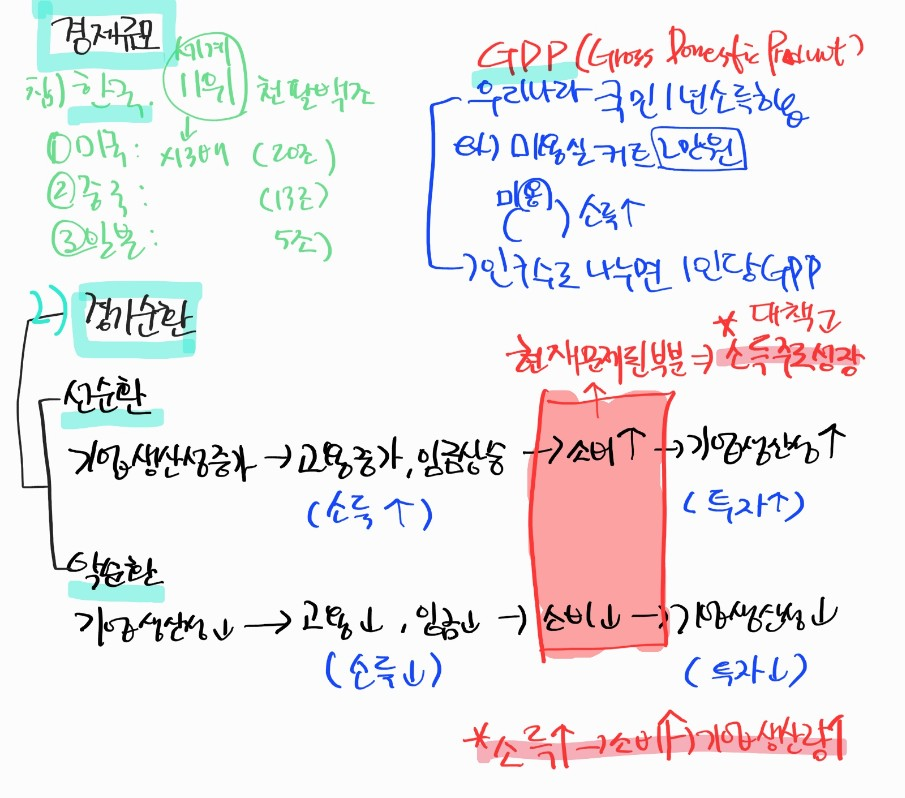 경제규모
참) 한국. 세계 11위 천팔백조
①미국: x13배 (20조)
②중국: (13조)
③일본: 5조)
GDP (Gross Domestic Product)
우리나라 국민 1년소득합
예) 미용실 커트 2만원
미용( ) 소득↑
→인구수로 나누면 1인당 GDP
2) 경기순환
* 대책고
현재문제된부분⇒소득주도성장
선순환
기업생산성증가→고용증가, 임금상승→소비↑→기업생산성↑
(소득↑) (투자↑)
악순환
기업생산성↓→고용↓, 임금↓→소비↓→기업생산성↓
(소득↓) (투자↓)
*소득↑→소비↑→기업생산량↑